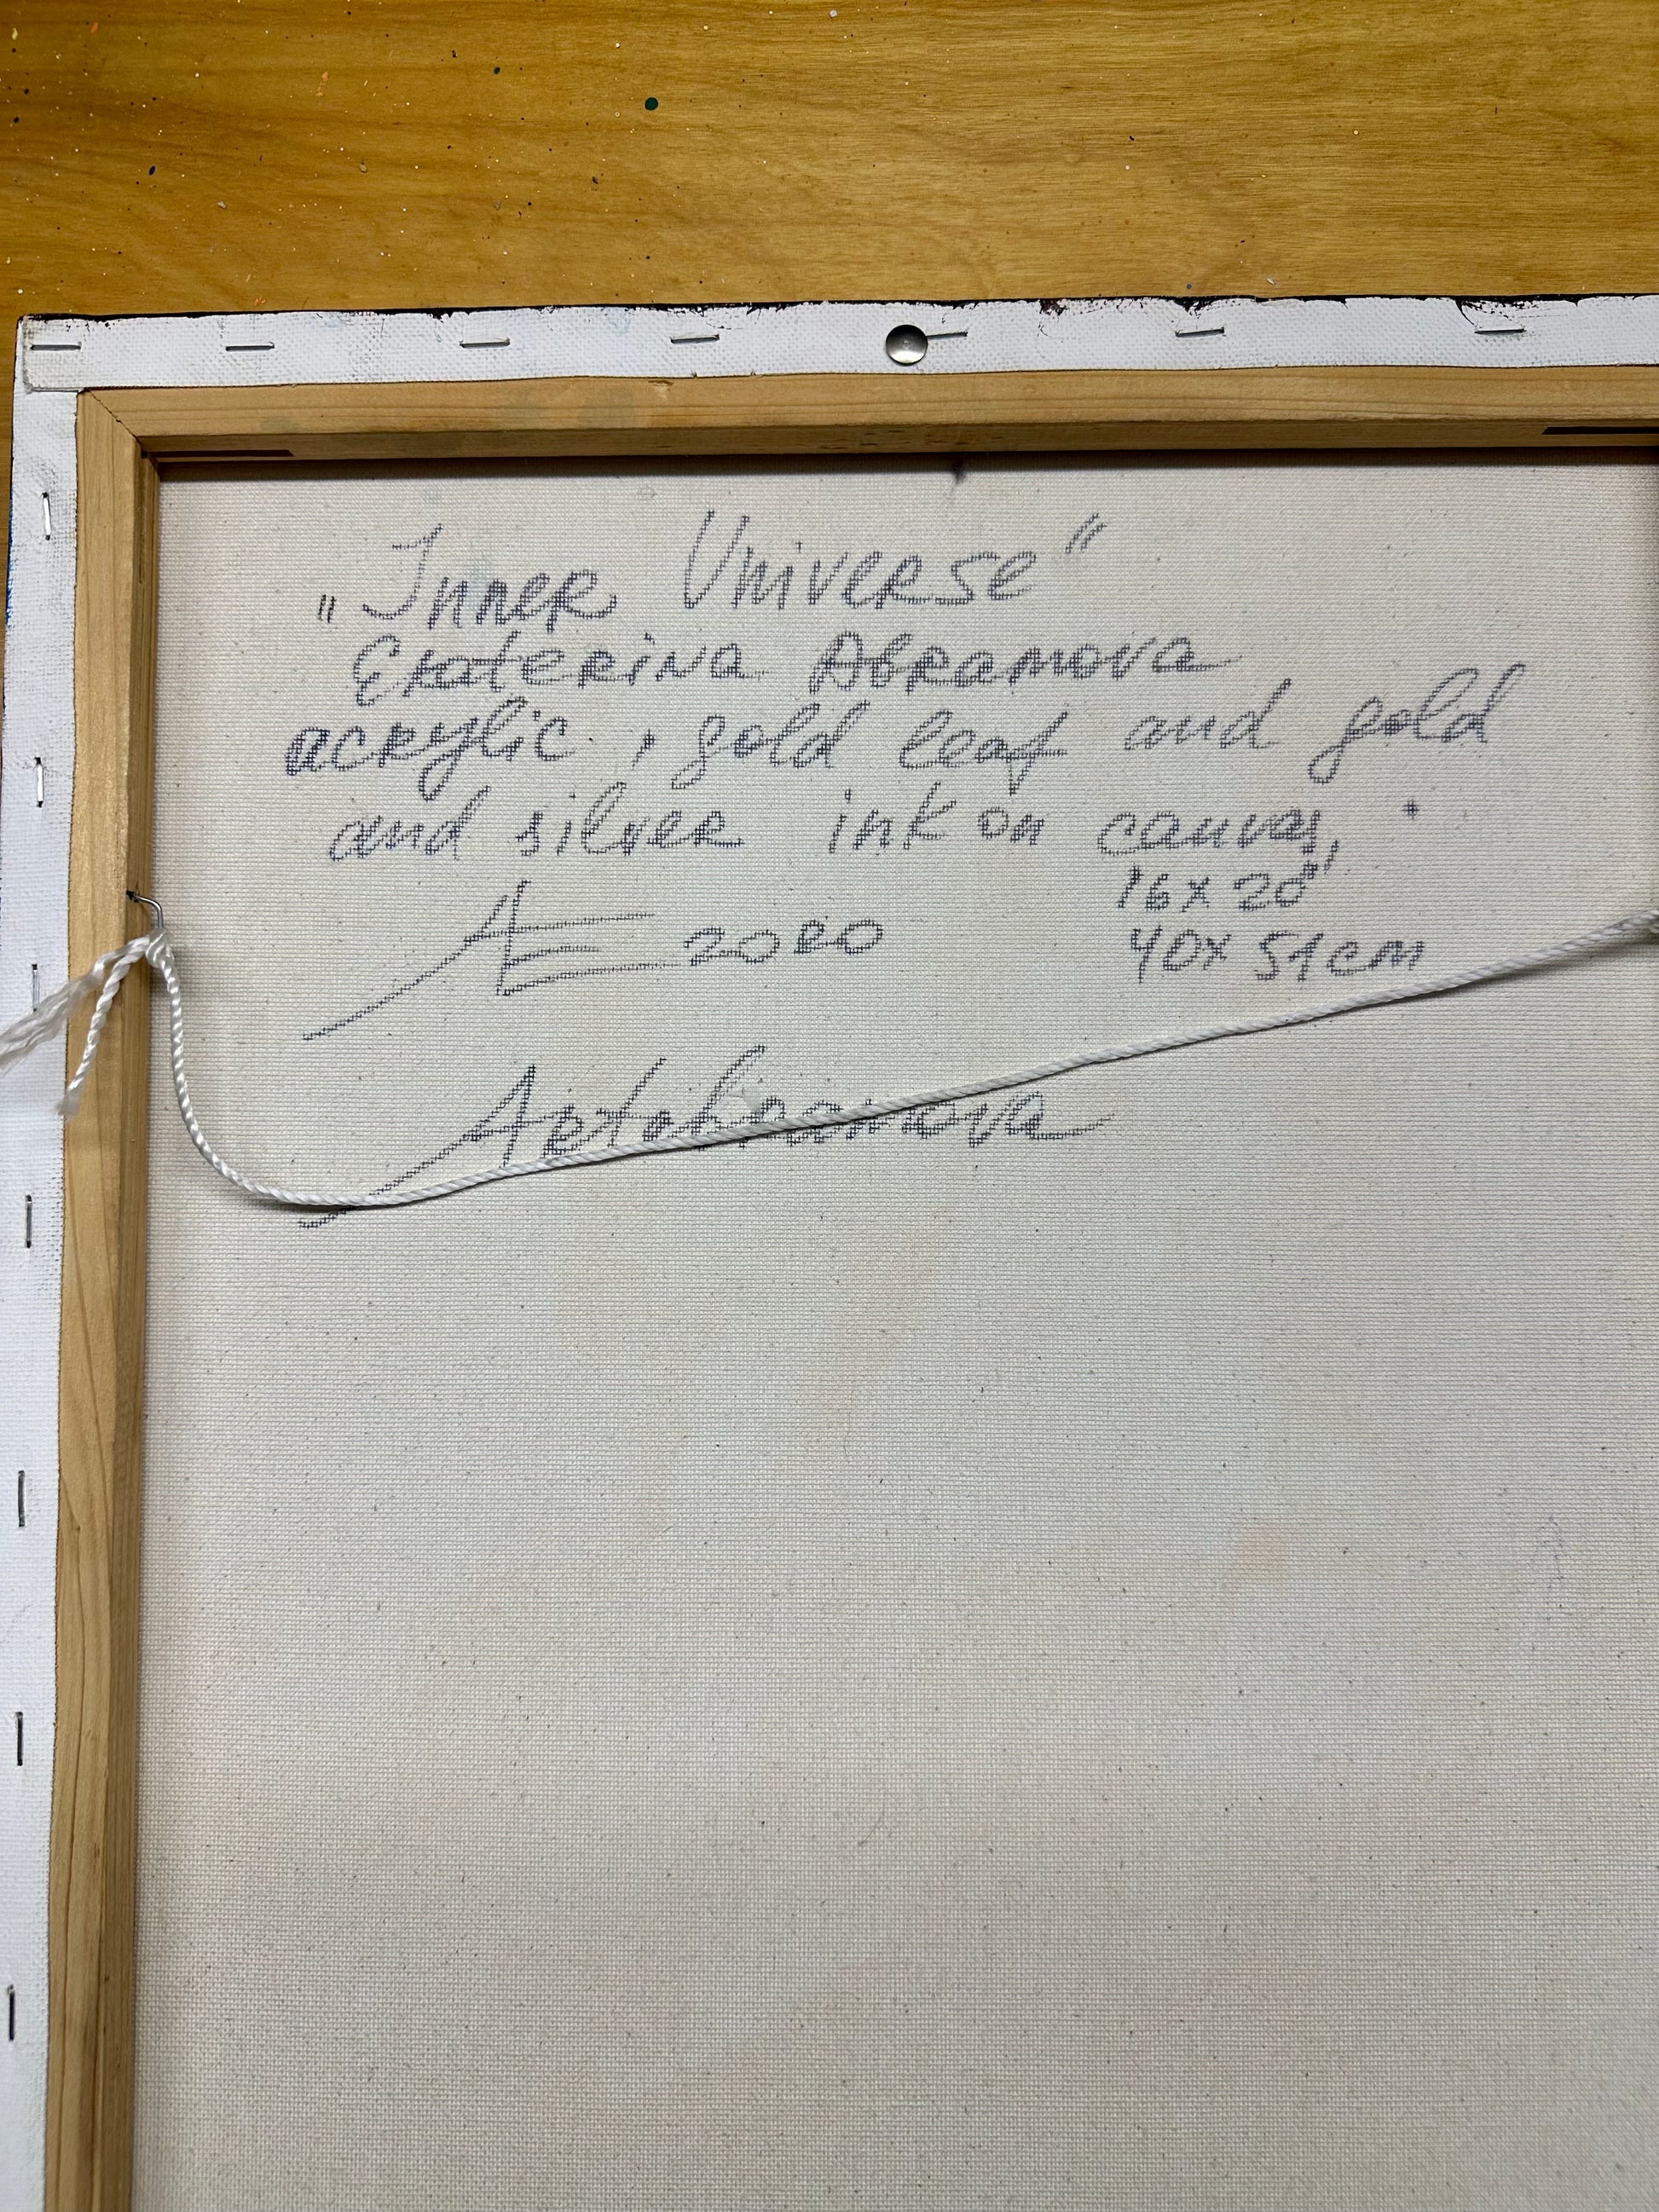 "Inner Universe"
Ekaterina Abramova
acrylic, gold leaf and gold
and silver ink on canvas,
16x20"
40x51cm
AE 2020